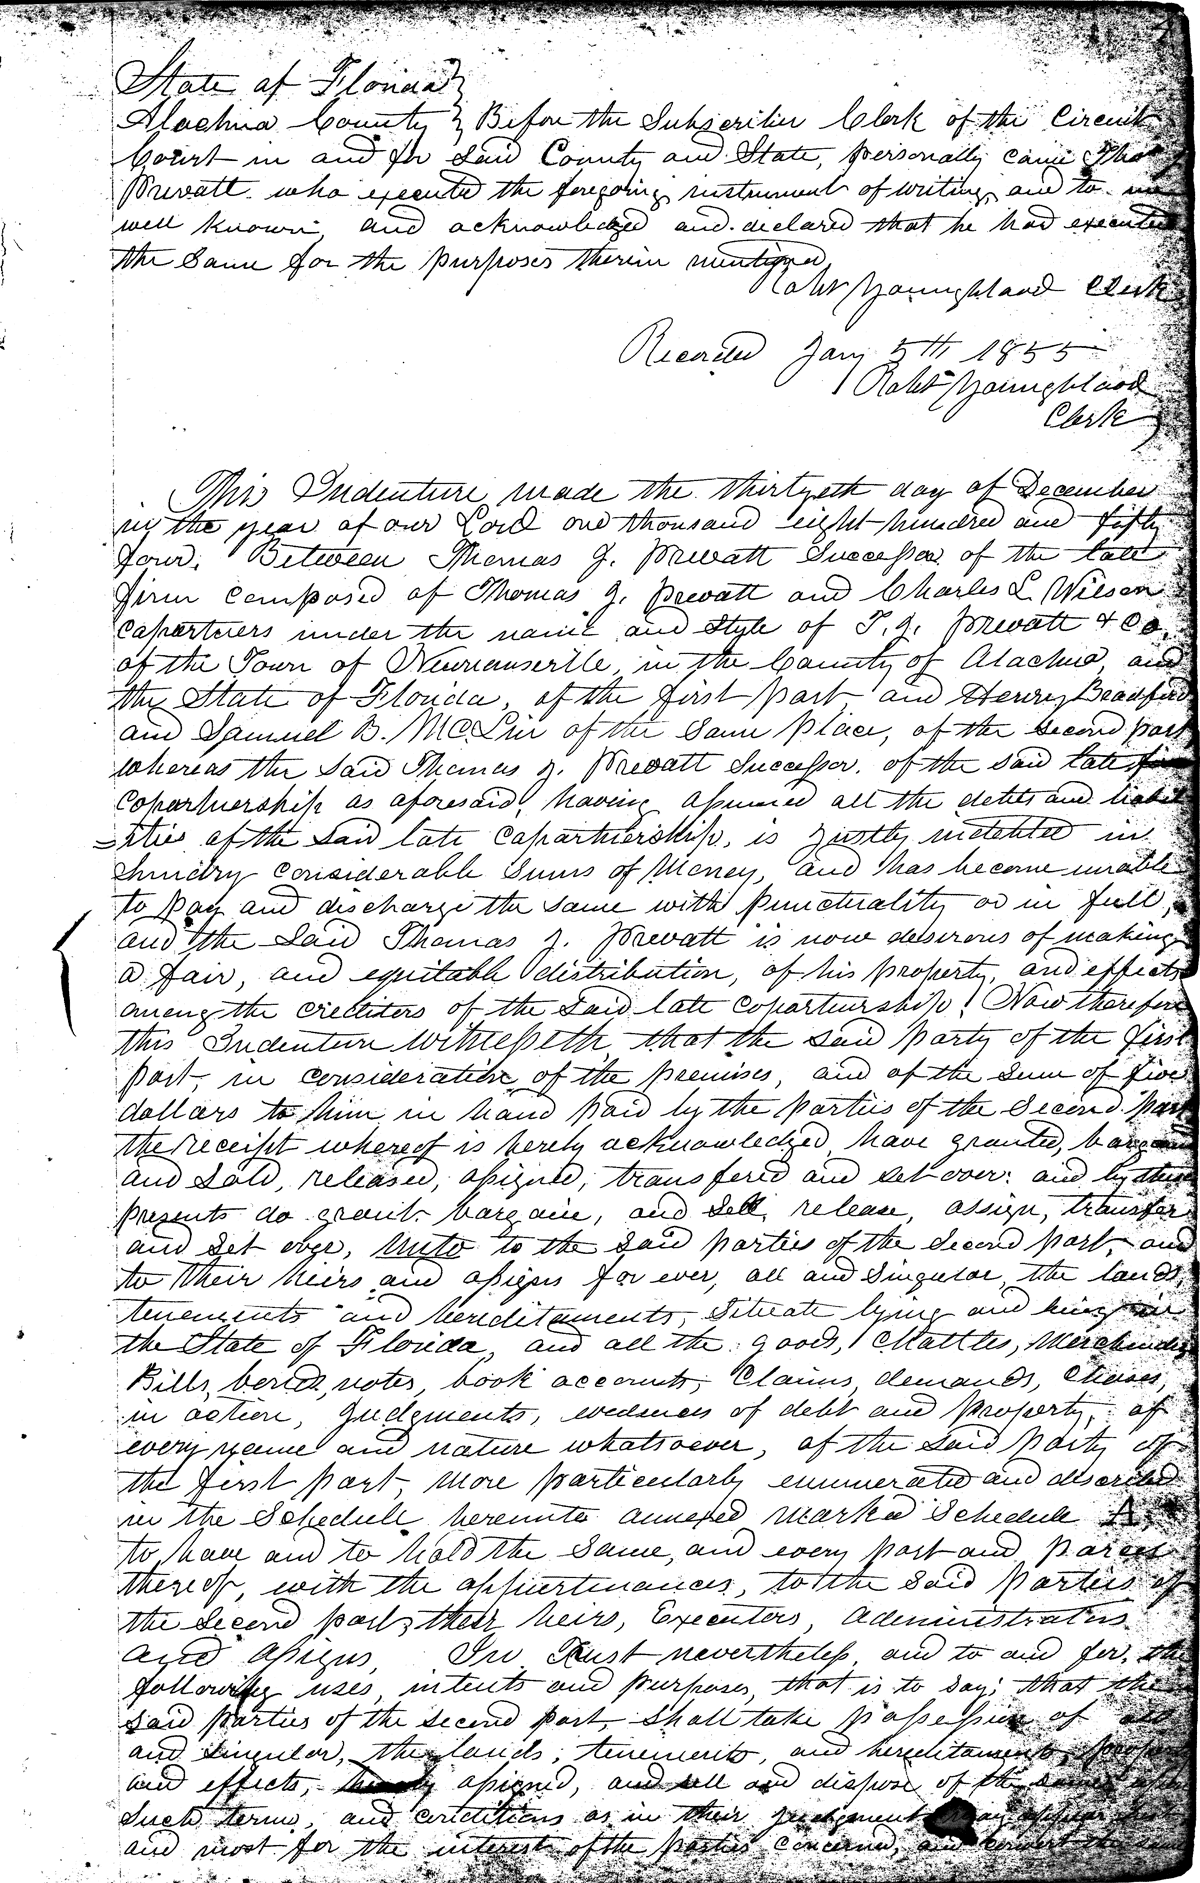 State of Florida }
Alachua County } Before the Subscriber Clerk of the Circuit
Court in and for said County and State, personally came Thos J
Prevatt who executed the foregoing instrument of writing, and to me
well known, and acknowledged and declared that he had executed
the same for the purposes therein mentioned,
Robt Youngblood Clerk
Recorded Jany 5th 1855
Robt Youngblood
Clerk
This Indenture made the thirtyeth day of December
in the year of our Lord one thousand eight hundred and fifty
four, Between Thomas J. Prevatt Successor of the late
firm composed of Thomas J. Prevatt and Charles L. Wilson
copartners under the name and Style of T. J. Prevatt & Co,
of the Town of Newnansville, in the County of Alachua, and
the State of Florida, of the first part, and Henry Bradford
and Samuel B. McLin of the Same place, of the second part
whereas the said Thomas J. Prevatt Successor of the said late
copartnership as aforesaid, having assumed all the debts and liabil
=ities of the said late copartnership, is justly indebted in
sundry considerable sums of Money, and has become unable
to pay and discharge the same with punctuality or in full,
and the said Thomas J. Prevatt is now desirous of making
a fair, and equitable distribution, of his property, and effects
among the creditors of the said late copartnership! Now therefore
this Indenture witnesseth, that the said party of the first
part, in consideration of the premises, and of the sum of five
dollars to him in hand paid by the parties of the second part
the receipt whereof is hereby acknowledged, have granted, bargained
and sold, released, assigned, transfered and set over: and by these
presents do grant bargain, and sell, release, assign, transfer
and set over, unto to the said parties of the second part, and
to their heirs and assigns for ever, all and Singular, the lands,
tenements and hereditaments, situate lying and being in
the State of Florida, and all the goods, Chattles, Merchandize
Bills, bonds, notes, book accounts, Claims, demands, Choses,
in action, Judgments, evedences of debt and property, of
every name and nature whatsoever, of the said party of
the first part, more particularly enumerated and described
in the Schedule hereunto annexed marked Schedule A,
to have and to hold the same, and every part and parcel
thereof, with the appurtenances, to the said parties of
the second part, their heirs, Executors, administrators
and assigns, In Trust nevertheless, and to and for, the
following uses, intents and purposes, that is to say; that the
said parties of the second part, shall take possession of all
and singular, the lands, tenements, and hereditaments, property
and effects, hereby assigned, and sell and dispose of the same upon
such terms, and conditions as in their judgment may appear best
and most for the interest of the parties concerned, and convert the same